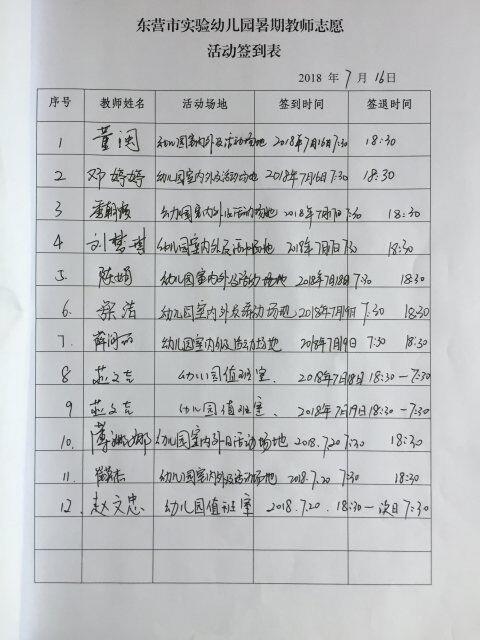 东营市实验幼儿园暑期教师志愿
活动签到表
2018 年 7 月 16 日
序号 教师姓名 活动场地 签到时间 签退时间
1 董闽 幼儿园室内外及活动场地 2018年7月16日 7:30 18:30
2 邓婷婷 幼儿园室内外及活动场地 2018年7月16日 7:30 18:30
3 幼儿园室内外及活动场地 2018年7月17日 7:30 18:30
4 刘梦琪 幼儿园室内外及活动场地 2018年7月17日 7:30 18:30
5. 陈娟 幼儿园室内外及活动场地 2018年7月18日 7:30 18:30
6. 洁 幼儿园室内外及活动场地 2018年7月19日 7:30 18:30
7. 薛 幼儿园室内外及活动场地 2018年7月19日 7:30 18:30
8 幼儿园值班室. 2018年7月18日 18:30-7:30
9 幼儿园值班室. 2018年7月19日 18:30-7:30
10. 幼儿园室内外及活动场地 2018.7.20 7:30 18:30
11. 幼儿园室内外及活动场地 2018.7.20 7:30 18:30
12. 赵文忠 幼儿园值班室 2018.7.20. 18:30-次日7:30